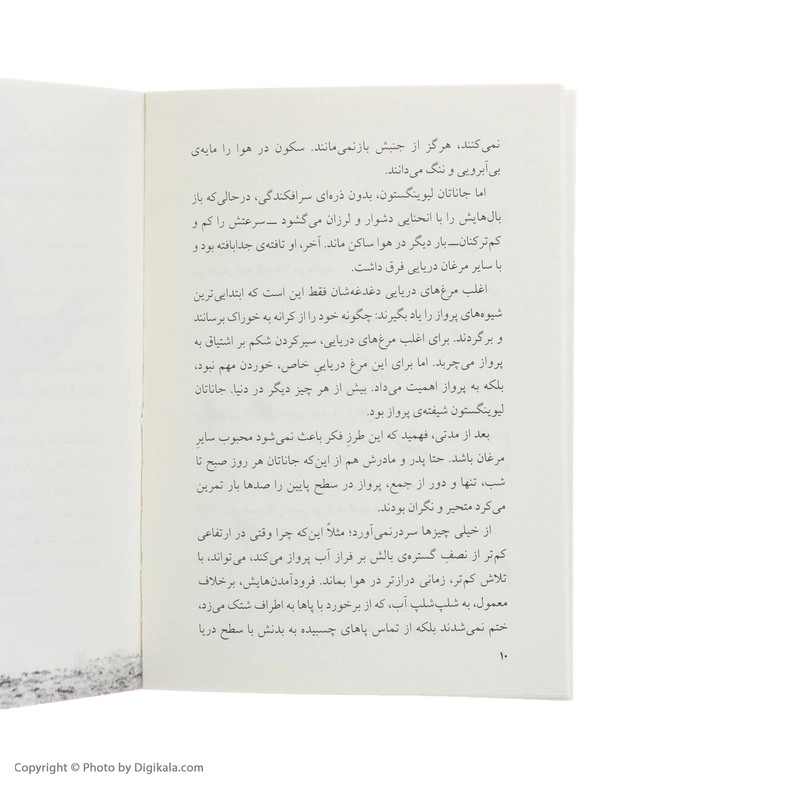 نمی‌کنند، هرگز از جنبش بازنمی‌مانند. سکون در هوا را مایه‌ی
بی‌آبرویی و ننگ می‌دانند.
اما جاناتان لیوینگستون، بدون ذره‌ای سرافکندگی، درحالی‌که باز
بال‌هایش را با انحنایی دشوار و لرزان می‌گشود ــ سرعتش را کم و
کم‌ترکنان ــ بار دیگر در هوا ساکن ماند. آخر، او تافته‌ی جدابافته بود و
با سایر مرغان دریایی فرق داشت.
اغلب مرغ‌های دریایی دغدغه‌شان فقط این است که ابتدایی‌ترین
شیوه‌های پرواز را یاد بگیرند: چگونه خود را از کرانه به خوراک برسانند
و برگردند. برای اغلب مرغ‌های دریایی، سیرکردن شکم بر اشتیاق به
پرواز می‌چربد. اما برای این مرغ دریاییِ خاص، خوردن مهم نبود،
بلکه به پرواز اهمیت می‌داد. بیش از هر چیز دیگر در دنیا. جاناتان
لیوینگستون شیفته‌ی پرواز بود.
بعد از مدتی، فهمید که این طرزِ فکر باعث نمی‌شود محبوب سایرِ
مرغان باشد. حتا پدر و مادرش هم از این‌که جاناتان هر روز صبح تا
شب، تنها و دور از جمع، پرواز در سطح پایین را صدها بار تمرین
می‌کرد متحیر و نگران بودند.
از خیلی چیزها سردرنمی‌آورد؛ مثلاً این‌که چرا وقتی در ارتفاعی
کم‌تر از نصفِ گستره‌ی بالش بر فراز آب پرواز می‌کند، می‌تواند، با
تلاش کم‌تر، زمانی درازتر در هوا بماند. فرودآمدن‌هایش، برخلاف
معمول، به شلپ‌شلپ آب، که از برخورد با پاها به اطراف شتک می‌زد،
ختم نمی‌شدند بلکه از تماس پاهای چسبیده به بدنش با سطح دریا
۱۰
Copyright © Photo by Digikala.com